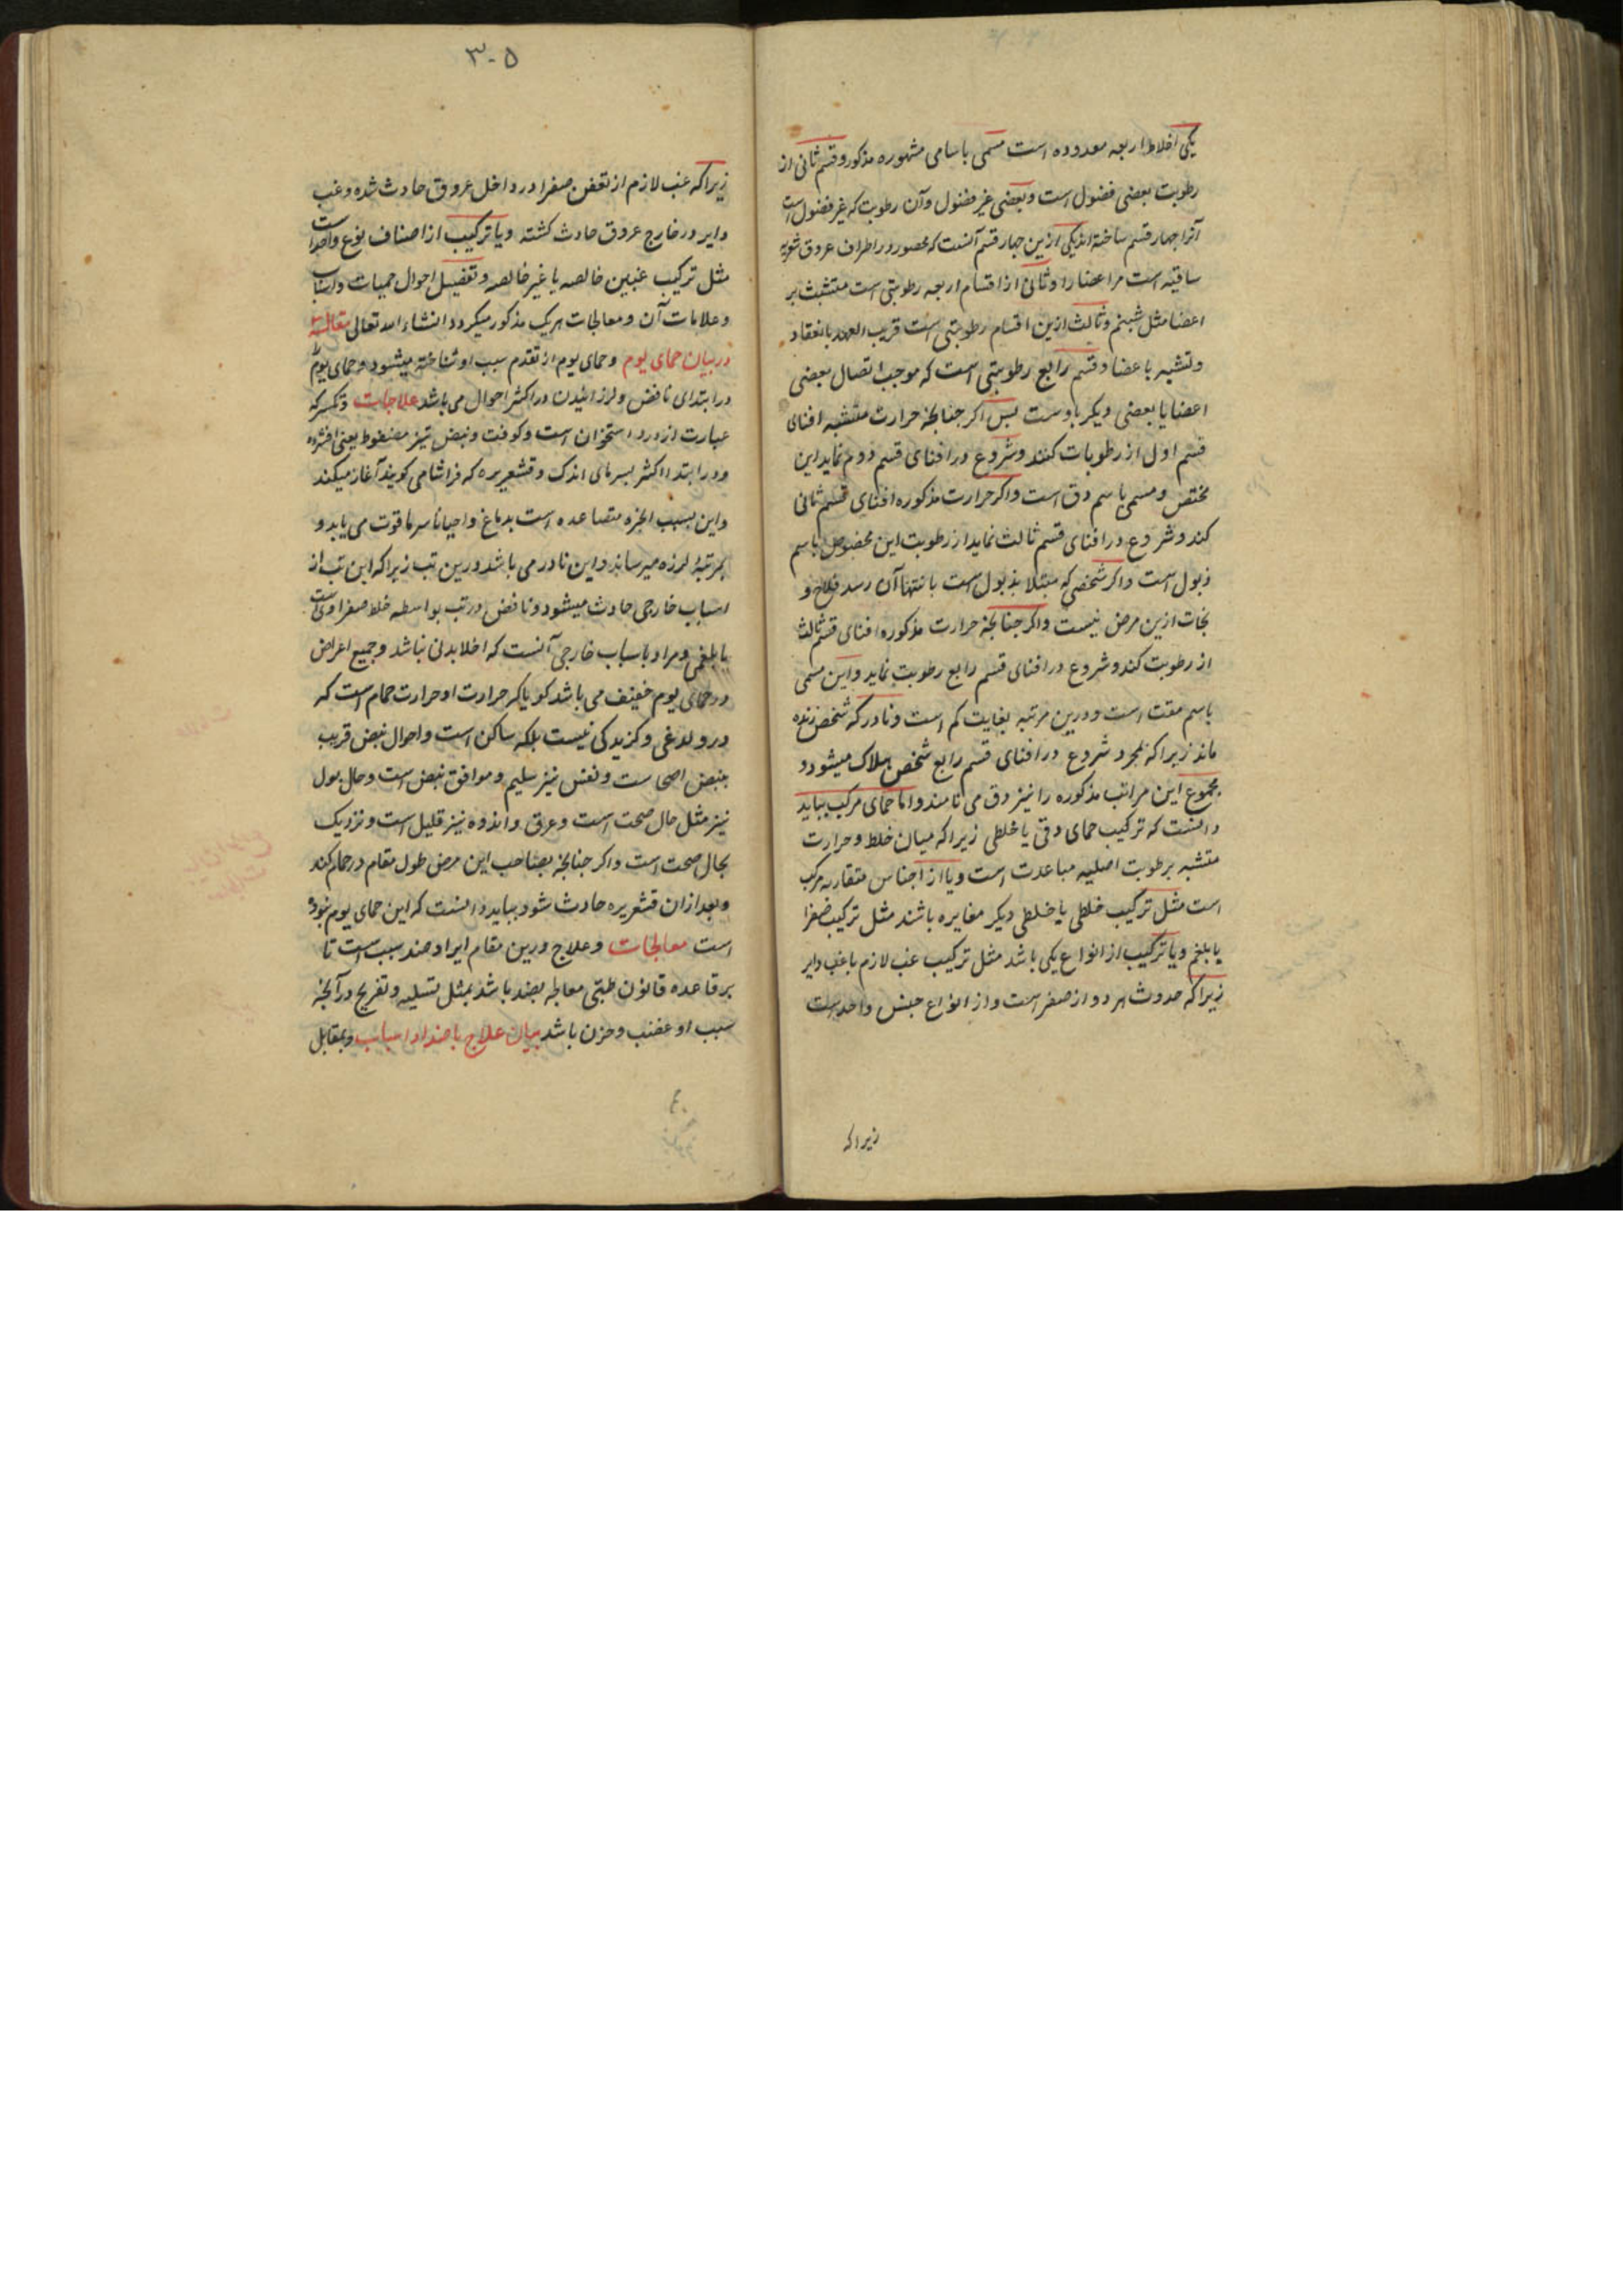 یکی اخلاط اربعه معدوده است مسمی باسامی مشهوره مذکور و قسم ثانی از
رطوبت بعضی فضول است و بعضی غیر فضول و آن رطوبت که غیر فضول است
آنرا چهار قسم ساخته اند یکی ازین چهار قسم آنست که محصور در اطراف عروق
ساقیه است مر اعضا را و ثانی از اقسام اربعه رطوبتی است متشبث بر
اعضا مثل شبنم و ثالث ازین اقسام رطوبتی است قریب العهد بانعقاد
و تشبه باعضا و قسم رابع رطوبتی است که موجب اتصال بعضی
اعضا با بعضی دیکر باوست پس اکر چنانچه حرارت متشبثه افنای
قسم اول از رطوبات کند و شروع در افنای قسم دوم نماید این
مختص و مسمی باسم دق است و اکر حرارت مذکوره افنای قسم ثانی
کند و شروع در افنای قسم ثالث نماید از رطوبت این مخصوص باسم
ذبول است و اکر شخصی که مبتلا بذبول است بانتها آن رسد فلاح و
نجات ازین مرض نیست و اکر چنانچه حرارت مذکوره افنای قسم ثالث
از رطوبت کند و شروع در افنای قسم رابع رطوبت نماید و این مسمی
باسم مفتت است و درین مرتبه بغایت کم است و نادر که شخص زنده
ماند زیرا که بمجرد شروع در افنای قسم رابع شخص هلاک میشود و
مجموع این مراتب مذکوره را نیز دق می نامند و اما حمای مرکب بباید
دانست که ترکیب حمای دقی با خلطی زیرا که میان خلط و حرارت
متشبثه برطوبت اصلیه مباعدت است و یا از اجناس متقاربه مرکب
است مثل ترکیب خلطی با خلطی دیکر مغایره باشند مثل ترکیب صفرا
با بلغم و یا ترکیب از انواع یکی باشد مثل ترکیب غب لازم با غب دایر
زیرا که حدوث هر دو از صفر است و از انواع جنس واحد است
زیرا که
۳۰۵
زیرا که غب لازم از تعفن صفرا در داخل عروق حادث شده و غب
دایر در خارج عروق حادث کشته و یا ترکیب از اصناف نوع واحد است
مثل ترکیب غبین خالصه یا غیر خالصه و تفصیل احوال حمیات و اسباب
و علامات آن و معالجات هریک مذکور میکردد انشاء الله تعالی مقاله
در بیان حمای یوم و حمای یوم از تقدم سبب او شناخته میشود و حمای یوم
در ابتدای نافض و لرزانیدن در اکثر احوال می باشد علاجات و تکسر که
عبارت از درد استخوان است و کوفت و نبض نیز مضغوط یعنی افشرده
و در ابتدا اکثر بسرمای اندک و قشعریره که فراشا می کویند آغاز میکند
و این بسبب ابخره متصاعده است بدماغ و احیانا سرما قوت می یابد و
بمرتبه لرزه میرساند و این نادر می باشد درین تب زیرا که این تب از
اسباب خارجی حادث میشود و نافض در تب بواسطه خلط صفراویست
یا بلغمی و مراد باسباب خارجی آنست که اخلا بدنی نباشد و جمیع اعراض
در حمای یوم خفیف می باشد کویا که حرارت او حرارت حمام است که
در و لدغی و کزیدکی نیست بلکه ساکن است و احوال نبض قریب
بنبض اصحاست و نفس نیز سلیم و موافق نبض است و حال بول
نیز مثل حال صحت است و عرق و اندوه نیز قلیل است و نزدیک
بحال صحت است و اکر چنانچه بصاحب این مرض طول مقام در حمام کند
و بعد از ان قشعریره حادث شود بباید دانست که این حمای یوم نبوده
است معالجات و علاج درین مقام ایراد ضد سبب است تا
بر قاعده قانون طبی معالجه بضد باشد بمثل تسلیه و تفریح در آنچه
سبب او غضب و حزن باشد بیان علاج باضداد اسباب و بمقابل